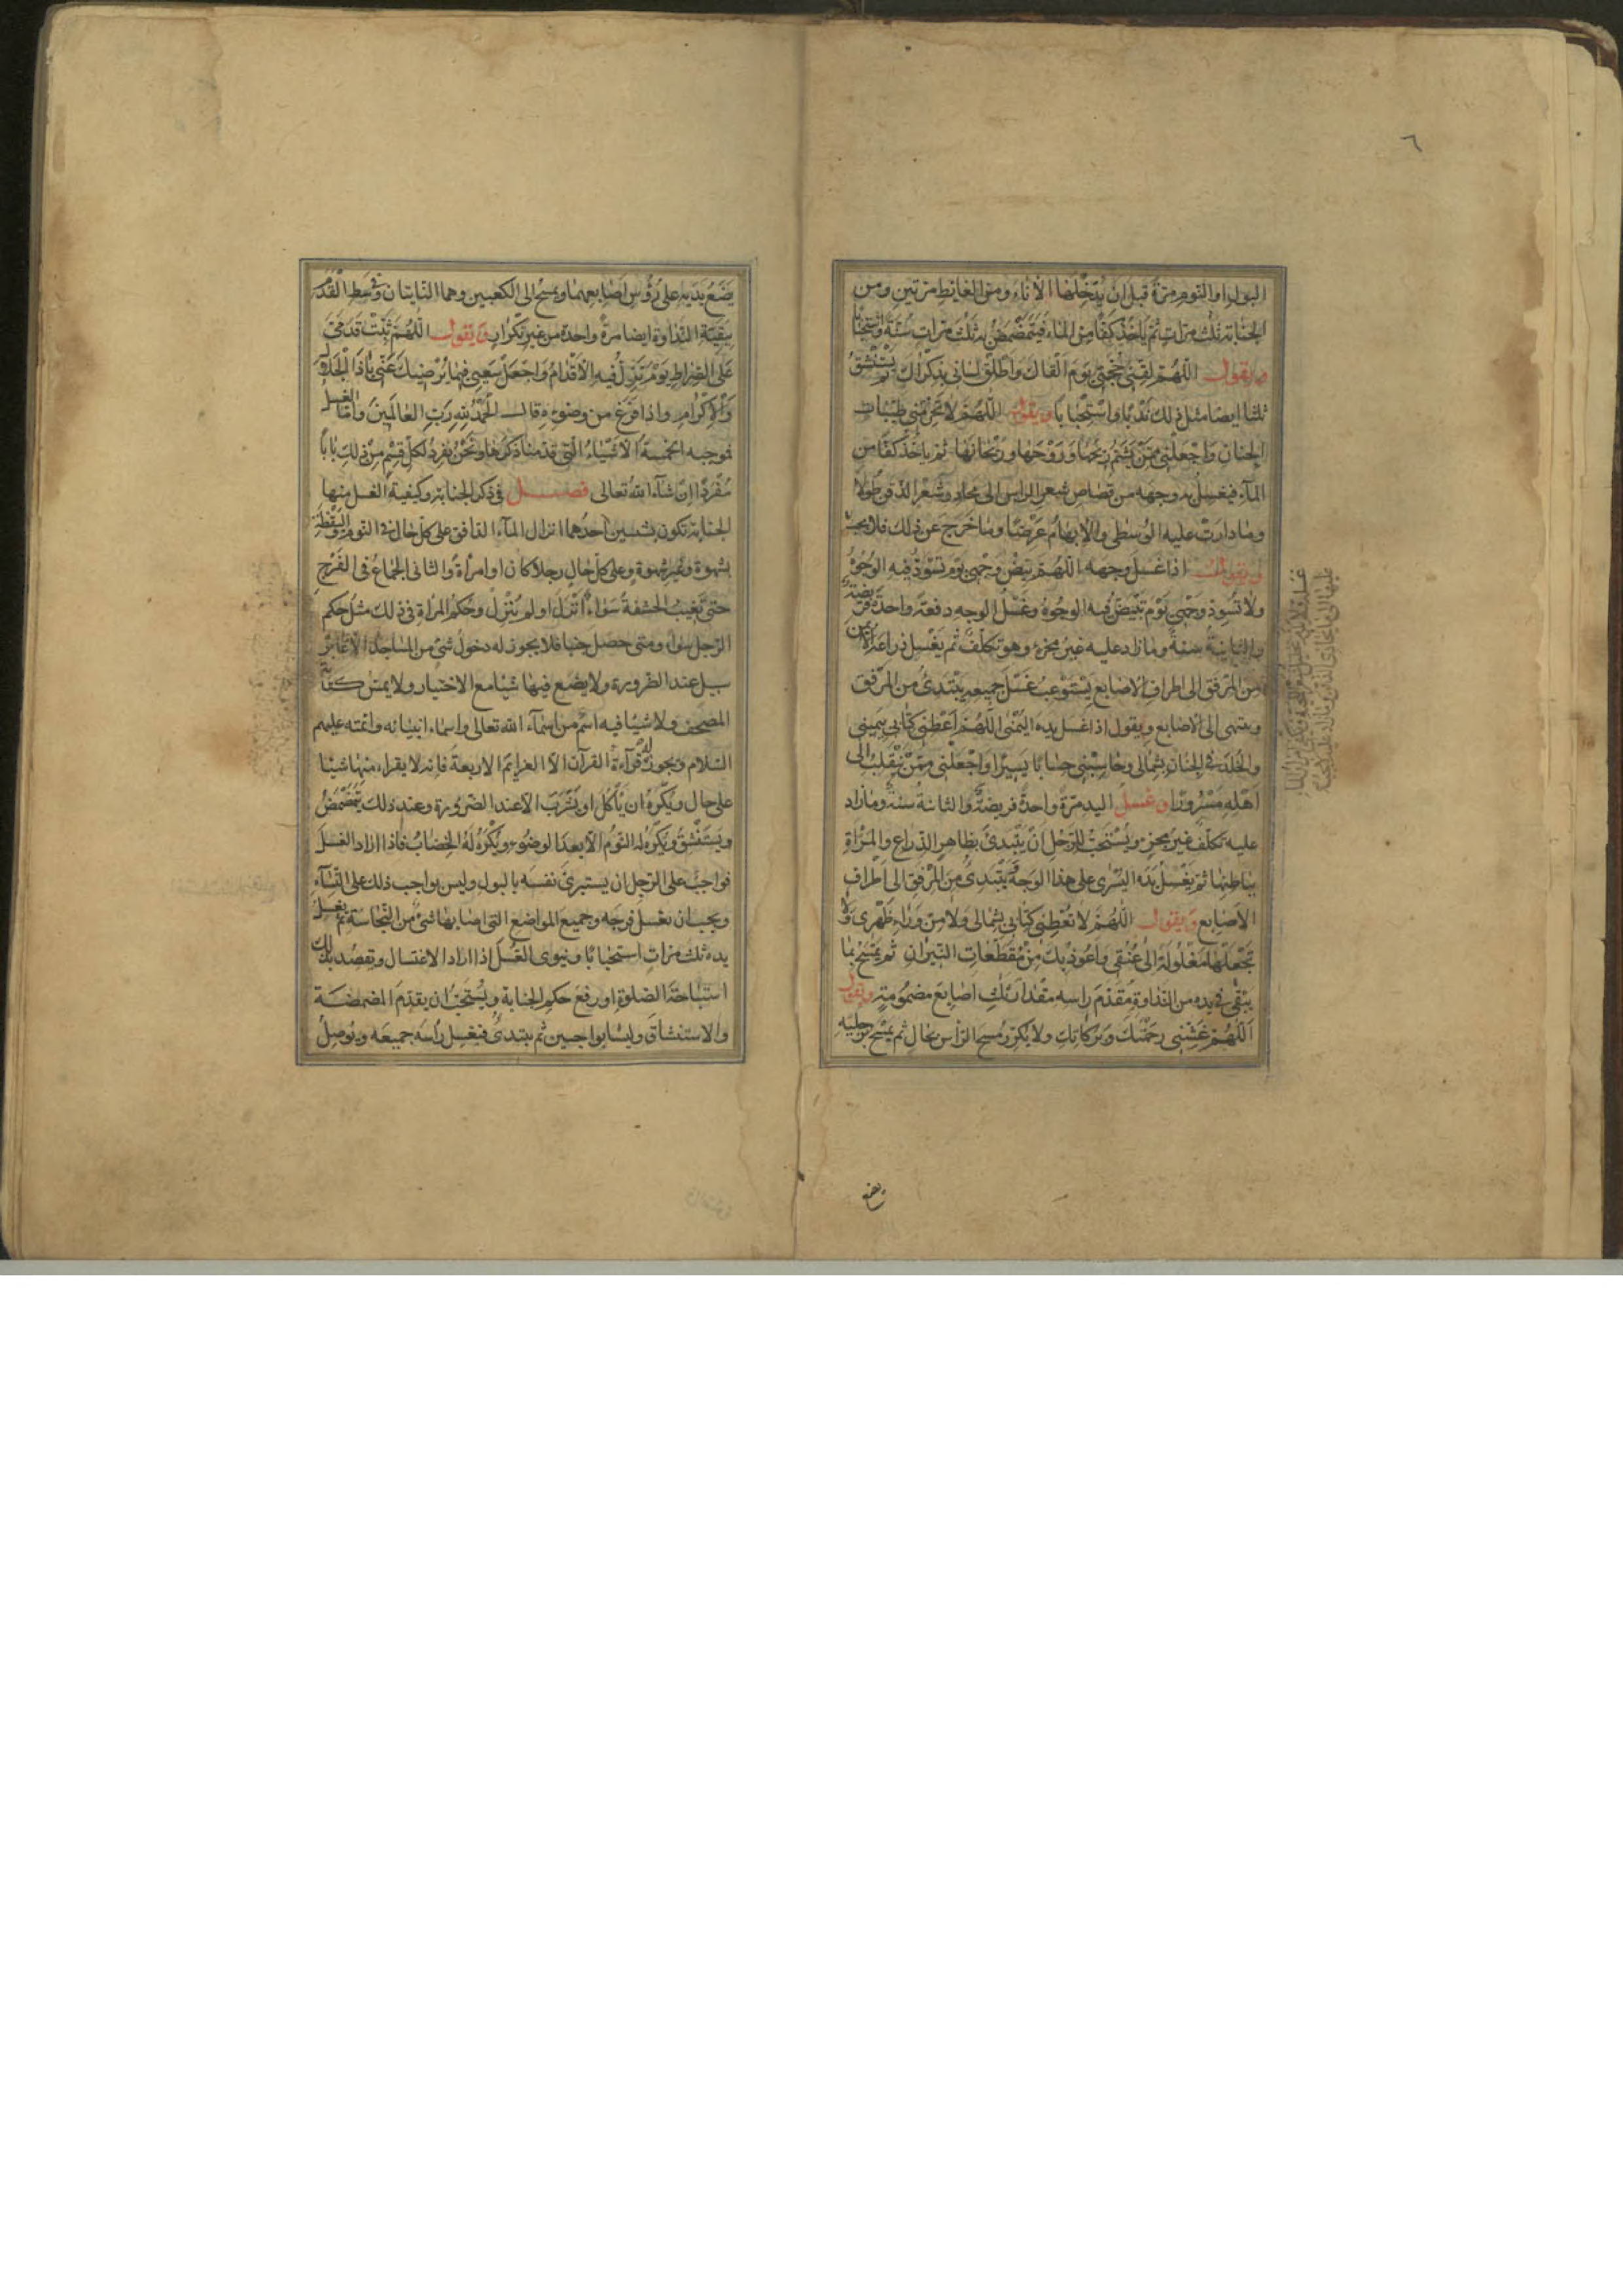 ٦
البول او النوم مرة قبل ان يُدْخِلَهُا الاناء ومن الغائط مرتين ومن
الجنابة ثلث مرات ثم يأخذ كفاً من الماء فيتمضمض به ثلث مرات سُنّةً واستحبابا
ويقول اللّهُمَّ لقِّنى حُجَّتى يَومَ اَلْقاكَ وَاَطْلِقْ لسانى بِذِكْراكَ ثم يستنشق
ثلثا ايضا مثل ذلك نَدْباً واسْتِحْبابا ويقول اللّهُمَّ لا تحرمنى طيّبات
الجنان وَاجْعَلْنى مِمَّنْ يَشَمُّ رِيْحَها وَرَوْحَها ورَيْحانَها ثم ياخذ كفّا من
المآء فيغسل به وجهه من قصاص شعر الراس الى محادر شعر الذقن طولا
وما دارت عليه الوسطى والابهام عَرْضًا وما خرج عن ذلك فلا يجب
ويقول اذا غسل وجهه اللّهُمَّ بَيِّضْ وَجْهى يَوْمَ تَسْوَدُّ فيه الوُجُوهُ
ولا تُسَوِّدْ وَجْهى يَوْمَ تَبْيَضُّ فيه الوجوهُ وغَسْلُ الوجه دفعة واحدة فريضة
والثانية سنة وما زاد عليه غير مجزء وهو تكلّف ثم يَغْسِل ذراعه الايمن
من المرفق الى اطراف الاصابع يستوعب غَسْل جميعه يبتدئُ من المرفق
وينتهى الى الاصابع ويقول اذا غسل يده اليمنى اللّهُمَّ اَعْطِنى كتابى بيَمينى
والخُلدَ فى الجنان بشمالى وحاسِبْنى حِسابًا يَسيرًا وَاجْعَلْنى مِمَّنْ يَنْقَلِبُ الى
اَهْلِهِ مَسْرُورًا وغَسلُ اليد مرّة واحدة فريضة والثانية سُنةٌ وما زاد
عليه تكلّف غير مجزٍ ويُسْتَحبّ للرَجُلِ اَنْ يَبْتَدئَ بظاهر الذراع والمرأة
بباطنها ثم يَغْسِلُ يَدَه اليُسْرى على هذا الوجه يَبْتَدئُ من المرفق الى اطراف
الاصابع ويقول اللّهُمَّ لا تُعْطِنى كتابى بشمالى ولا من وراء ظَهْرى ولا
تَجْعَلْها مَغْلُولَةً الى عُنُقى وَاَعُوذُ بِكَ مِنْ مُقَطَّعاتِ النّيرانِ ثم يَمْسَحُ بما
يبْقى فى يده من النداوة مُقَدَّمَ راسه مقدار ثلث اصابع مضمومة ويقول
اَللّهُمَّ غَشِّنى رحْمَتَكَ وَبَرَكاتِكَ ولا يُكَرّر مسح الرأس بحال ثم يمسح برجليه
يضع
يَضَعُ يَدَيه على رُؤُس اَصابعهما ويمسح الى الكعبين وهما النابتان فى وسط القدم
ببقيّة النداوة ايضا مرة واحدة من غير تكرارٍ ويقول اللّهُمَّ ثَبِّتْ قَدَمَىَّ
عَلَى الصّراط يومَ تزِلّ فيه الاَقْدامُ وَاجْعَلْ سَعْيى فيما يُرْضيكَ عَنّى ياذَا الْجَلالِ
وَالاِكْرام واذا فرغ من وضوءه قال الحَمْدُ لِلّهِ رَبِّ العالَمينَ وامّا الغسل
فموجبه الخمسة الاشياء التى قدّمنا ذكرها ونحنُ نُفْردُ لكلّ قِسْمٍ مِنْ ذلك بابًا
مُفْرَدًا اِنْ شآء الله تعالى فصل فى ذكر الجنابة وكيفية الغسل منها
الجنابة تكون بشيئين احدُهُما انزال المآء الدافق على كلّ حال فى النوم واليَقْظَةِ
بشهوة وغير شهوة وعلى كلّ حالٍ رجلا كان او امرأةً والثانى الجماعُ فى الفَرْجِ
حتى تَغيبَ الحَشَفةُ سَواءٌ اَنْزَلَ او لم يُنْزِلْ وحُكمُ المرْاة فى ذلك مثل حكم
الرّجل سواء ومتى حصل جنبا فلا يجوز له دخول شئ من المساجد الّا عابر
سبيل عند الضرورة ولا يضع فيها شيئا مع الاختيار ولا يمسّ كتابة
المصحف ولا شيئا فيه اسْمٌ من اسمآء الله تعالى واسماء انبيائه وائمته عليهم
السّلام ويجوز له قرآءة القرآن الّا العزائم الاربعة فانه لا يقراء منها شيئا
على حال ويُكْرَهُ ان يَاْكُل او يَشْرَبَ الّا عند الضرورة وعند ذلك يَتَمَضْمَضُ
ويَسْتَنْشِقُ ويُكْرَه له النوْمُ الّا بعدَ الوضوء ويُكْرَهُ لَهُ الخِضابُ فاذا اراد الغسلَ
فواجبٌ على الرّجل ان يستبرئَ نفسَه بالبول وليس بواجب ذلك على النساء
ويجب ان يغسل فرجه وجميع المواضع التى اصابها شئ من النجاسة ثم يغسل
يده ثلث مراتٍ استحبابًا وينوى الغُسْلَ اذا اراد الاغتسال ويقصد بذلك
استباحة الصلوة او رفعَ حكم الجنابة ويُسْتَحَبّ ان يقدّم المضمضة
والاستنشاق وليسا بواجبين ثم يبتدئُ فيغسل رَاْسَه جميعَه ويُوصِلُ